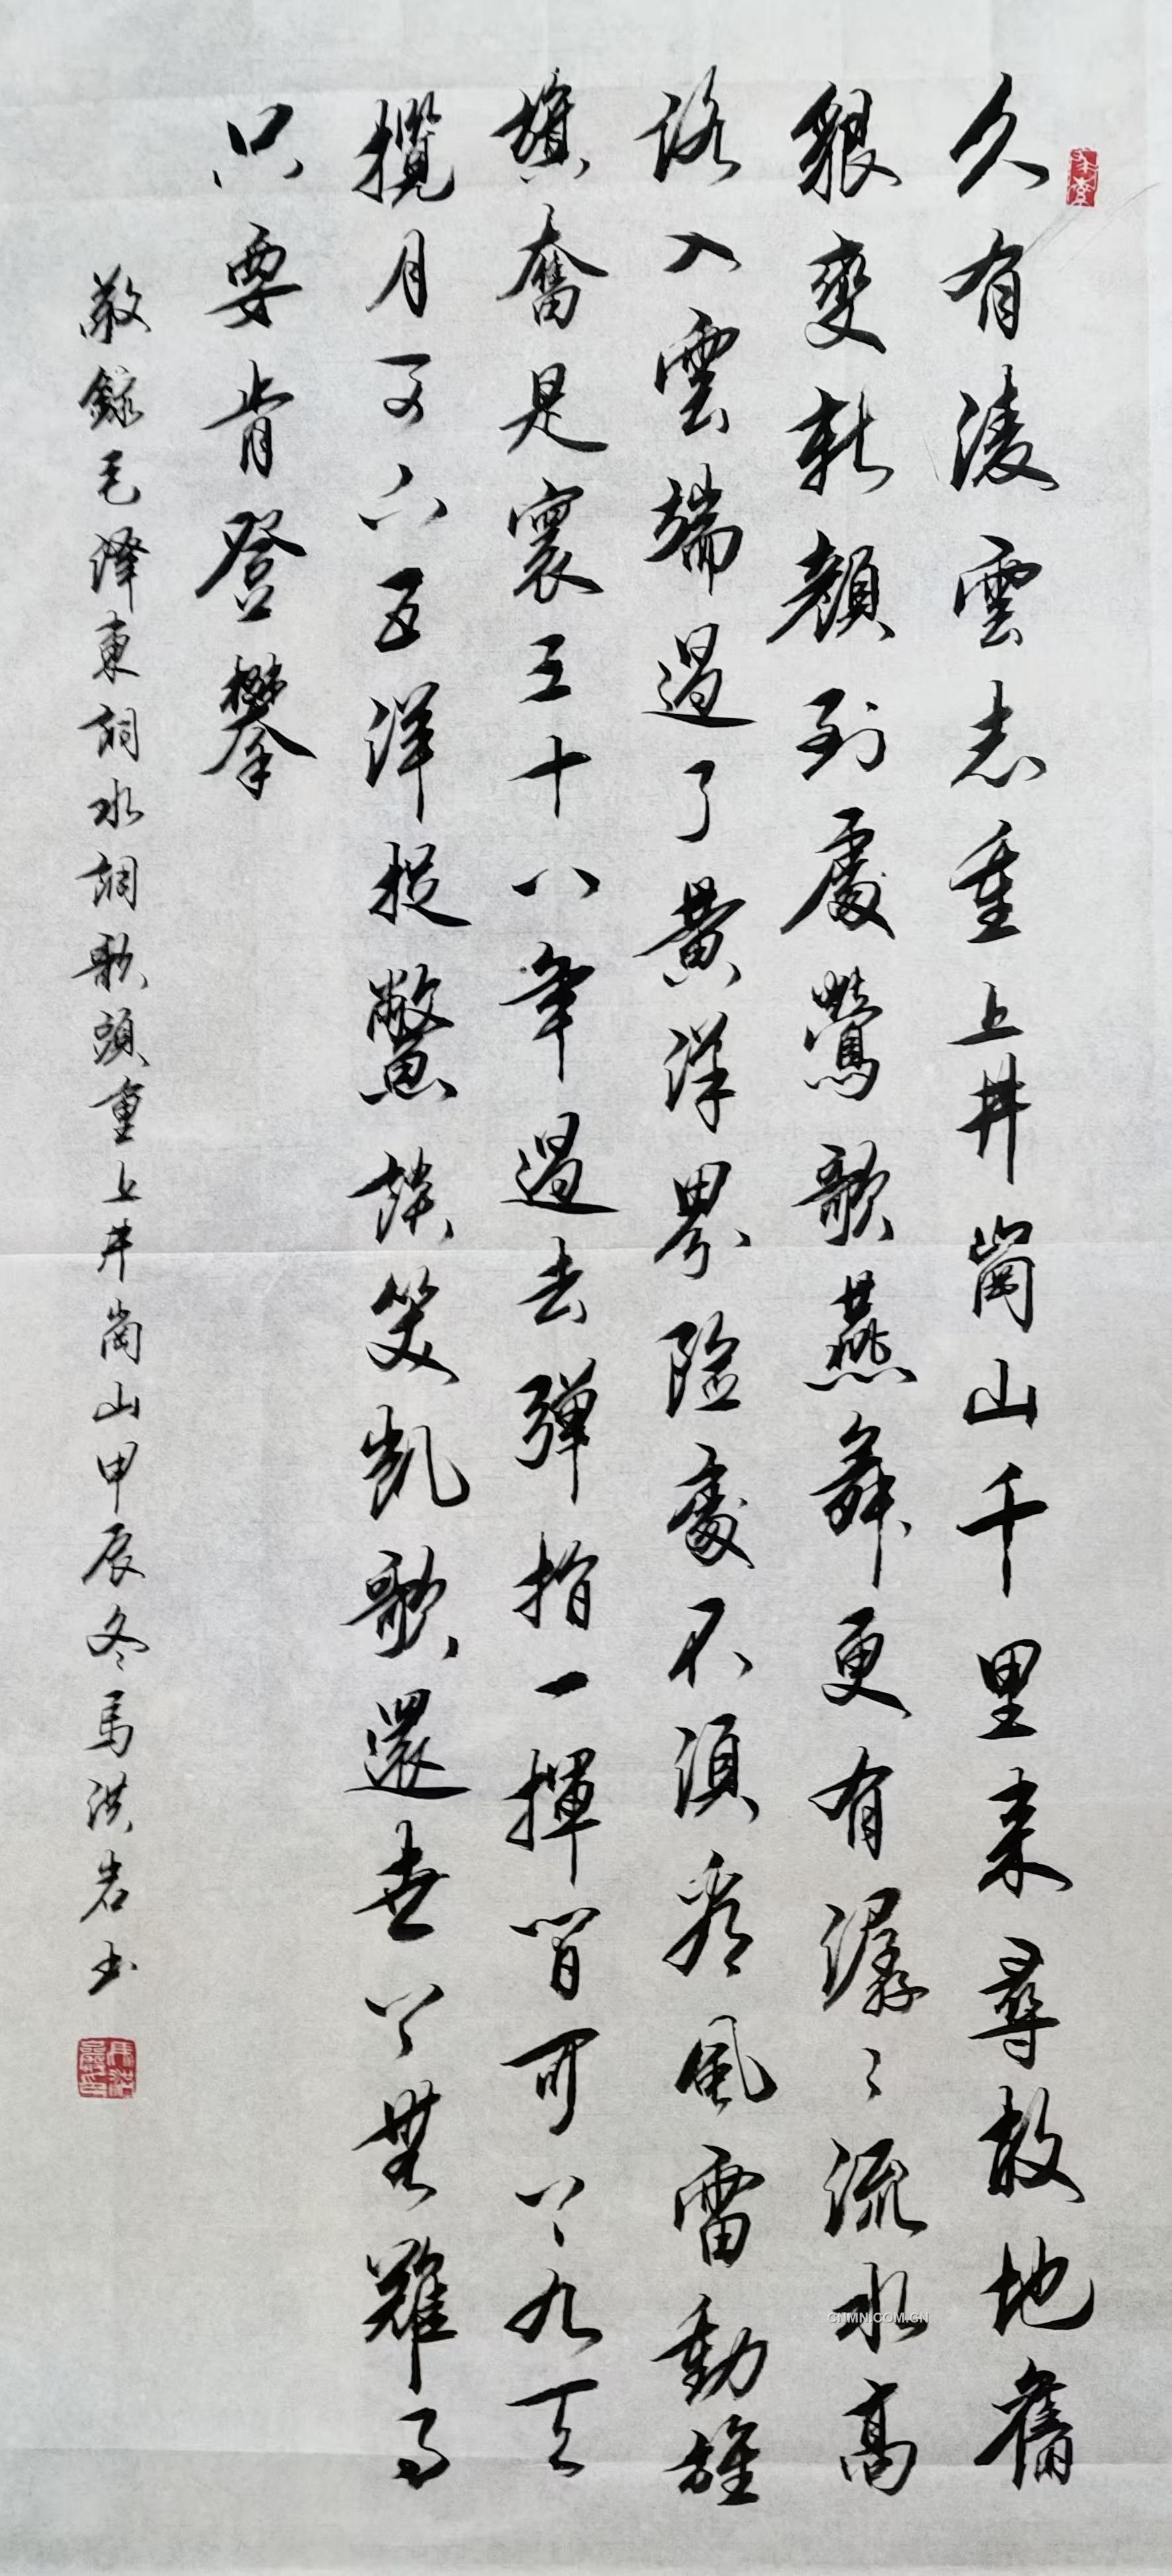 久有淩雲志重上井崗山千里来尋故地舊
貌變新顏到處鶯歌燕舞更有潺〻流水高
路入雲端過了黄洋界險處不須看風雷動旌
旗奮是寰三十八年過去彈指一揮間可上九天
攬月可下五洋捉鱉談笑凱歌還世上無難事
只要肯登攀
敬錄毛澤東詞水調歌頭重上井崗山甲辰冬馬洪岩书
CNMN.COM.CN